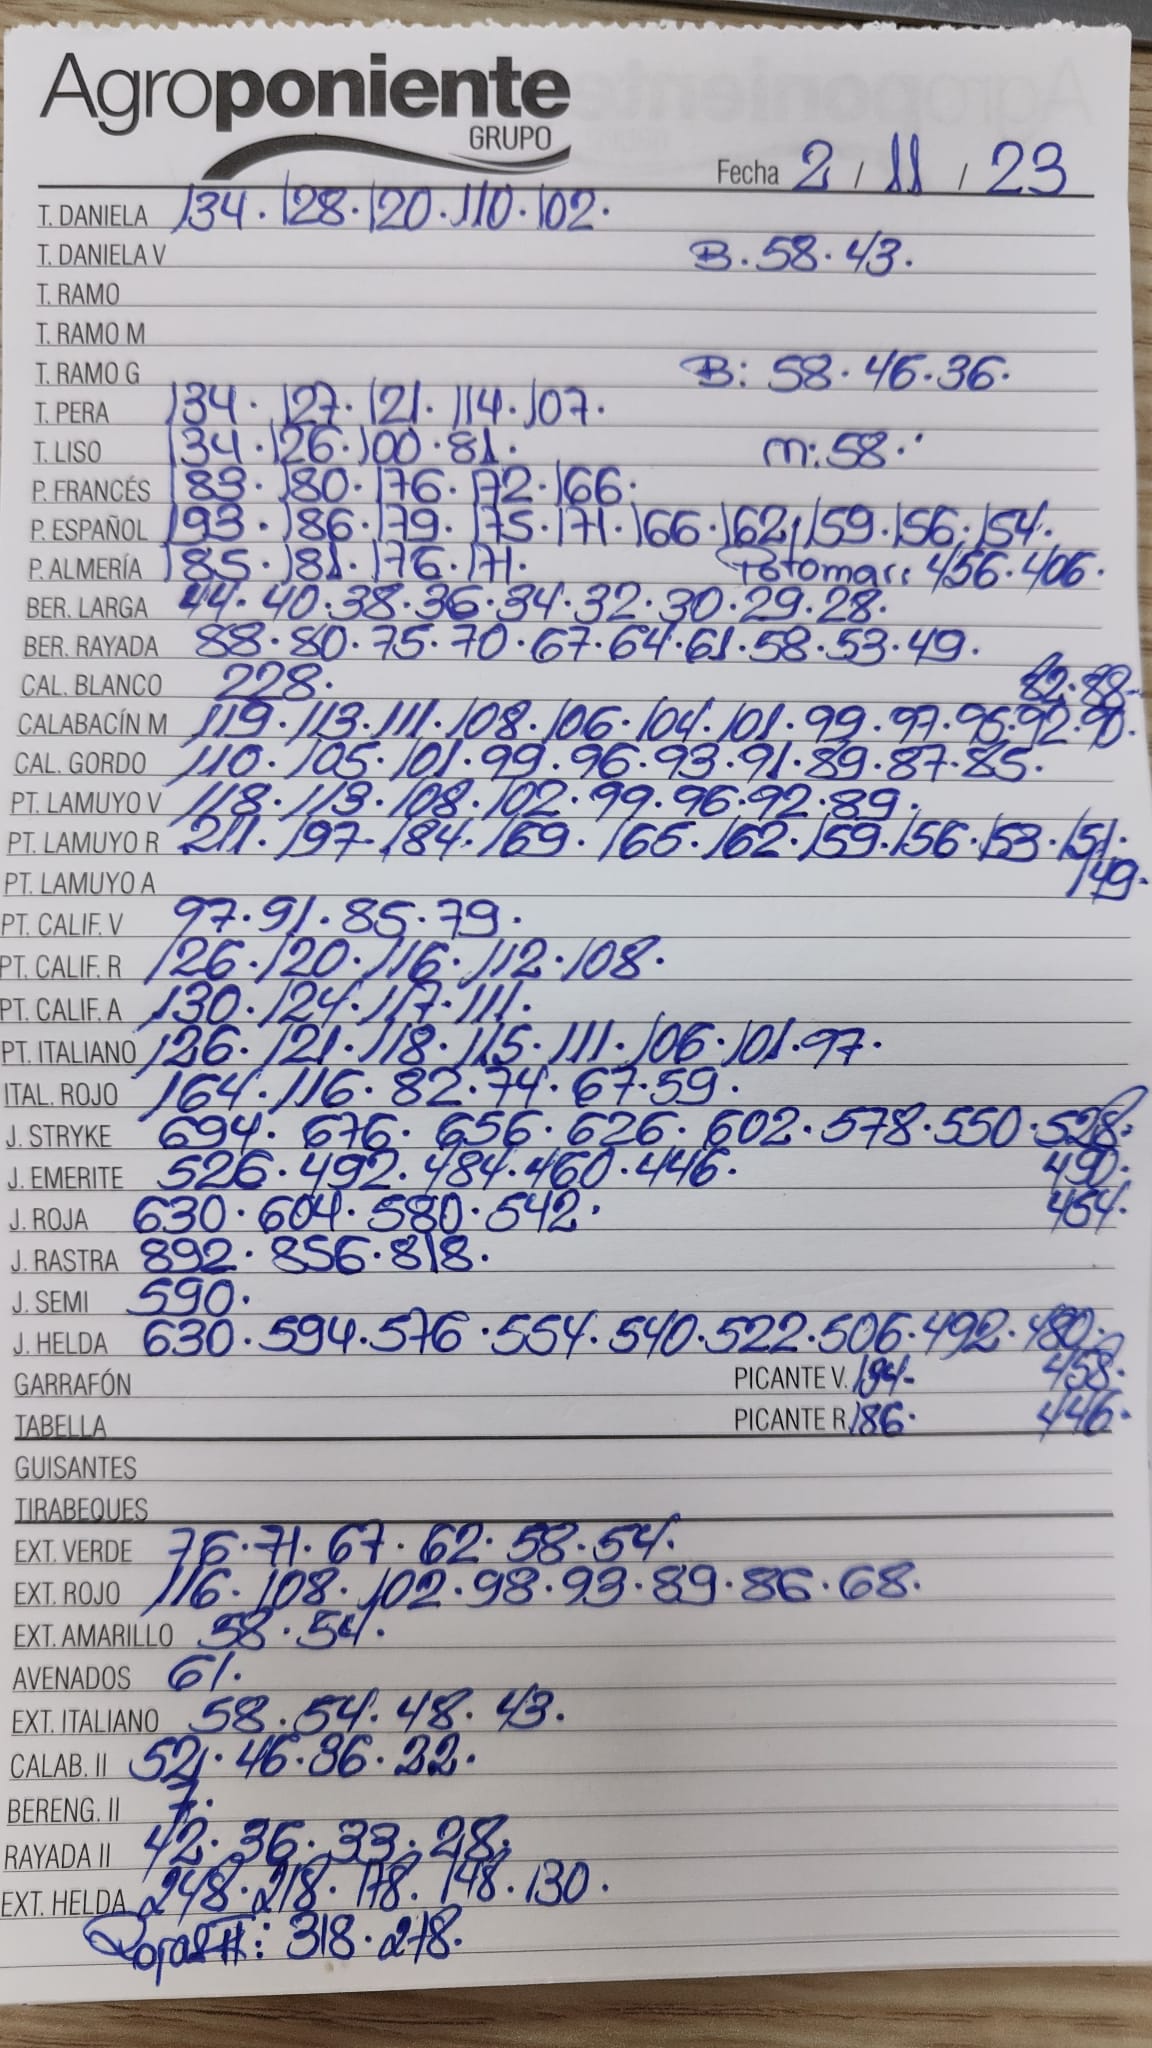 Agroponiente
GRUPO
Fecha 2 / 11 / 23
T. DANIELA 134. 128. 120. 110. 102.
T. DANIELA V B. 58. 43.
T. RAMO
T. RAMO M
T. RAMO G B: 58. 46. 36.
T. PERA 134. 127. 121. 114. 107.
T. LISO 134. 126. 100. 81. m: 58.
P. FRANCÉS 183. 180. 176. 172. 166.
P. ESPAÑOL 193. 186. 179. 175. 171. 166. 162. 159. 156. 154.
P. ALMERÍA 185. 181. 176. 171. Potomac: 456. 406.
BER. LARGA 44. 40. 38. 36. 34. 32. 30. 29. 28.
BER. RAYADA 88. 80. 75. 70. 67. 64. 61. 58. 53. 49.
CAL. BLANCO 228. 82. 88.
CALABACÍN M 119. 113. 111. 108. 106. 104. 101. 99. 97. 95. 92. 90.
CAL. GORDO 110. 105. 101. 99. 96. 93. 91. 89. 87. 85.
PT. LAMUYO V 118. 113. 108. 102. 99. 96. 92. 89.
PT. LAMUYO R 211. 197. 184. 169. 165. 162. 159. 156. 153. 151.
PT. LAMUYO A 149.
PT. CALIF. V 97. 91. 85. 79.
PT. CALIF. R 126. 120. 116. 112. 108.
PT. CALIF. A 130. 124. 117. 111.
PT. ITALIANO 126. 121. 118. 115. 111. 106. 101. 97.
ITAL. ROJO 164. 116. 82. 74. 67. 59.
J. STRYKE 694. 676. 656. 626. 602. 578. 550. 528.
J. EMERITE 526. 492. 484. 460. 446. 490.
J. ROJA 630. 604. 580. 542. 454.
J. RASTRA 892. 856. 818.
J. SEMI 590.
J. HELDA 630. 594. 576. 554. 540. 522. 506. 492. 480.
GARRAFÓN PICANTE V. 194. 458.
TABELLA PICANTE R. 186. 446.
GUISANTES
TIRABEQUES
EXT. VERDE 76. 71. 67. 62. 58. 54.
EXT. ROJO 116. 108. 102. 98. 93. 89. 86. 68.
EXT. AMARILLO 58. 54.
AVENADOS 61.
EXT. ITALIANO 58. 54. 48. 43.
CALAB. II 52. 46. 36. 22.
BERENG. II 7.
RAYADA II 42. 36. 33. 28.
EXT. HELDA 248. 218. 178. 148. 130.
Rojas II: 318. 278.